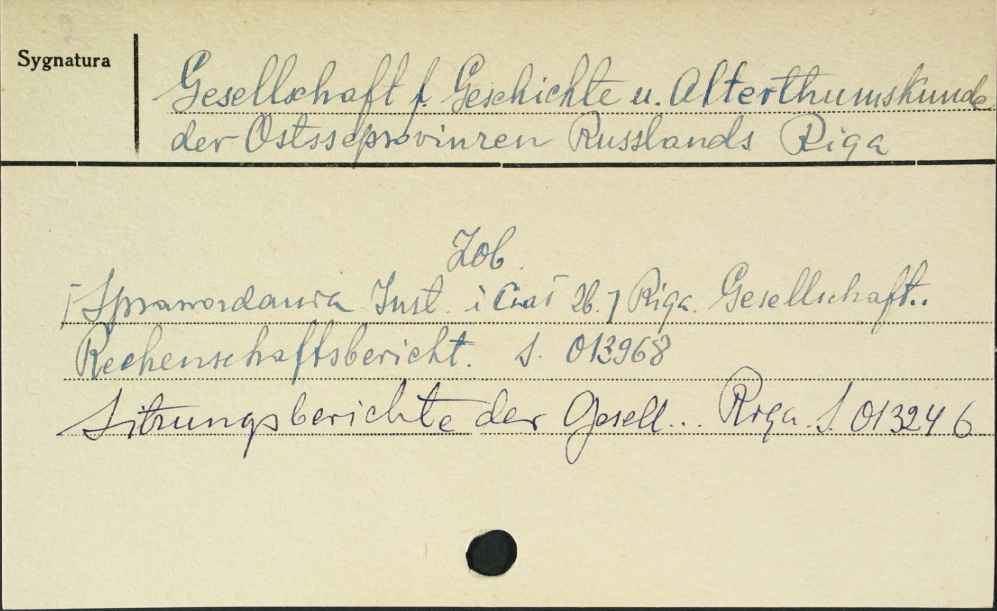 Sygnatura
Gesellschaft f. Geschichte u. Alterthumskunde
der Ostsseprovinzen Russlands Riga
Zob.
[Sprawozdania Inst. i Czas. Zb.] Riga. Gesellschaft..
Rechenschaftsbericht. S. 013968
Sitzungsberichte der Gesell... Riga. S. 013246